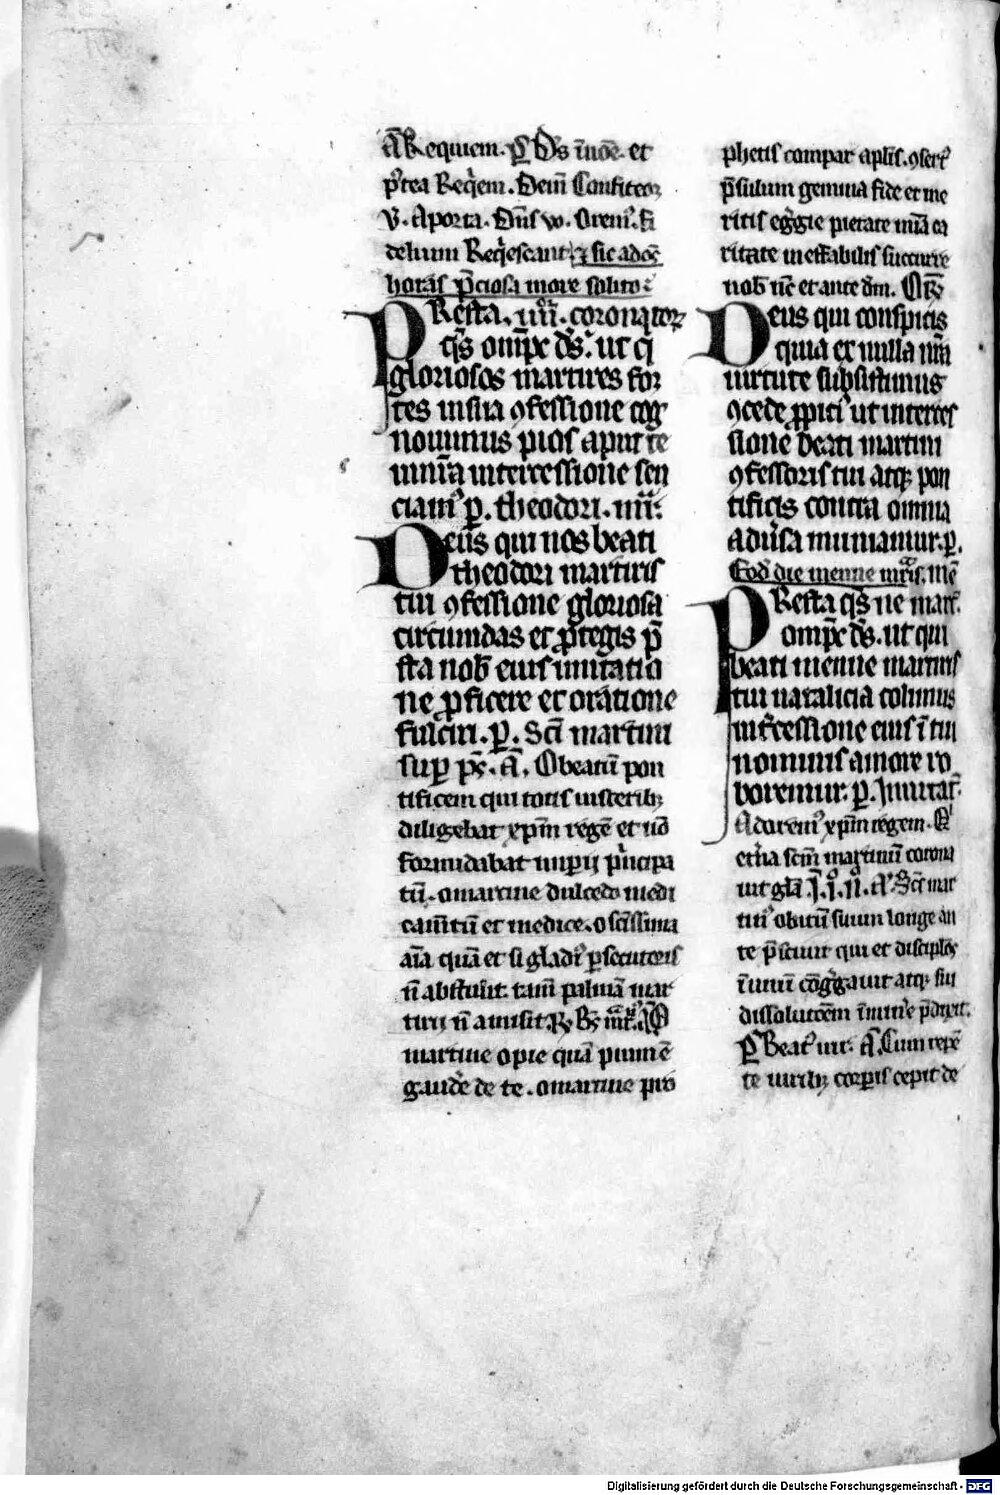 A̅ Requiem. p̅s D̅s i̅ no̅e. et
p̕tea Req̕em. Dein̅ Confiteor
V. Aporta. Dn̅s vo. Orem᷒. fi
delium Req̕escant ⁊ sic ad oe̅s
horas p̅ciosa more solito
PResta. iiii. coronator
q̅s om̅pe d̅s. ut q̕
gloriosos martires for
tes in sua ꝯfessione cog
novimus pios aput te
in nr̅a intercessione sen
ciam᷒ p. theodori. mr̅.
Deus qui nos beati
theodori martiris
tui ꝯfessione gloriosa
circumdas et ꝓtegis p̅
sta nob̅ eius imitatio
ne ꝓficere et oratione
fulciri. ꝑ. Sc̅i martini
suꝑ ps̅. A̅. O beatu̅ pon
tificem qui totis visceribꝫ
diligebat xp̅m rege̅ et no̅
formidabat imꝑii p̕ncipa
tu̅. o martine dulcedo medi
cam̅tu̅ et medice. o sc̅issima
ai̅a qua̅ et si gladi᷒ ꝑsecutoris
n̅ abstulit. tam̅ palma̅ mar
tirii n̅ amisit.
martine o pie qua̅ pium e̅
gaude̕ de te. o martine pro
phetis compar aplis̅. ꝯsert᷒
p̅sulum gemma fide et me
ritis eg̕gie pietate mi̅a ca
ritate ineffabilis succurre
nob̅ nc̅ et ante dm̅. Or̅
Deus qui conspicis
quia ex nulla nr̅a
virtute subsistimus
ꝯcede ꝓpici᷒ ut interces
sione beati martini
ꝯfessoris tui atqꝫ pon
tificis contra omnia
adv̕sa muniamur. ꝑ.
Eod̅ die menne mr̅is.
PResta q̅s ne mart̕.
om̅pe d̅s. ut qui
beati menne martiris
tui natalicia colimus
int̕cessione eius i̅ tui
nominis amore ro
boremur. ꝑ. Invitat̕.
Adorem᷒ xp̅m regem. q̕
et̕na scm̅ martinu̅ corona
vit gl̅a. A̕. Sc̅s mar
tin᷒ obitu̅ suum longe an
te p̅scivit qui et discipl̅os
i̅ unu̅ co̅g̕gavit atqꝫ sui
dissolutoe̅m i̅mine̕ p̅dixit.
p̅s Beat᷒ vir. A̕. Cum repe̅
te viribꝫ corꝑis cepit de
Digitalisierung gefördert durch die Deutsche Forschungsgemeinschaft - DFG